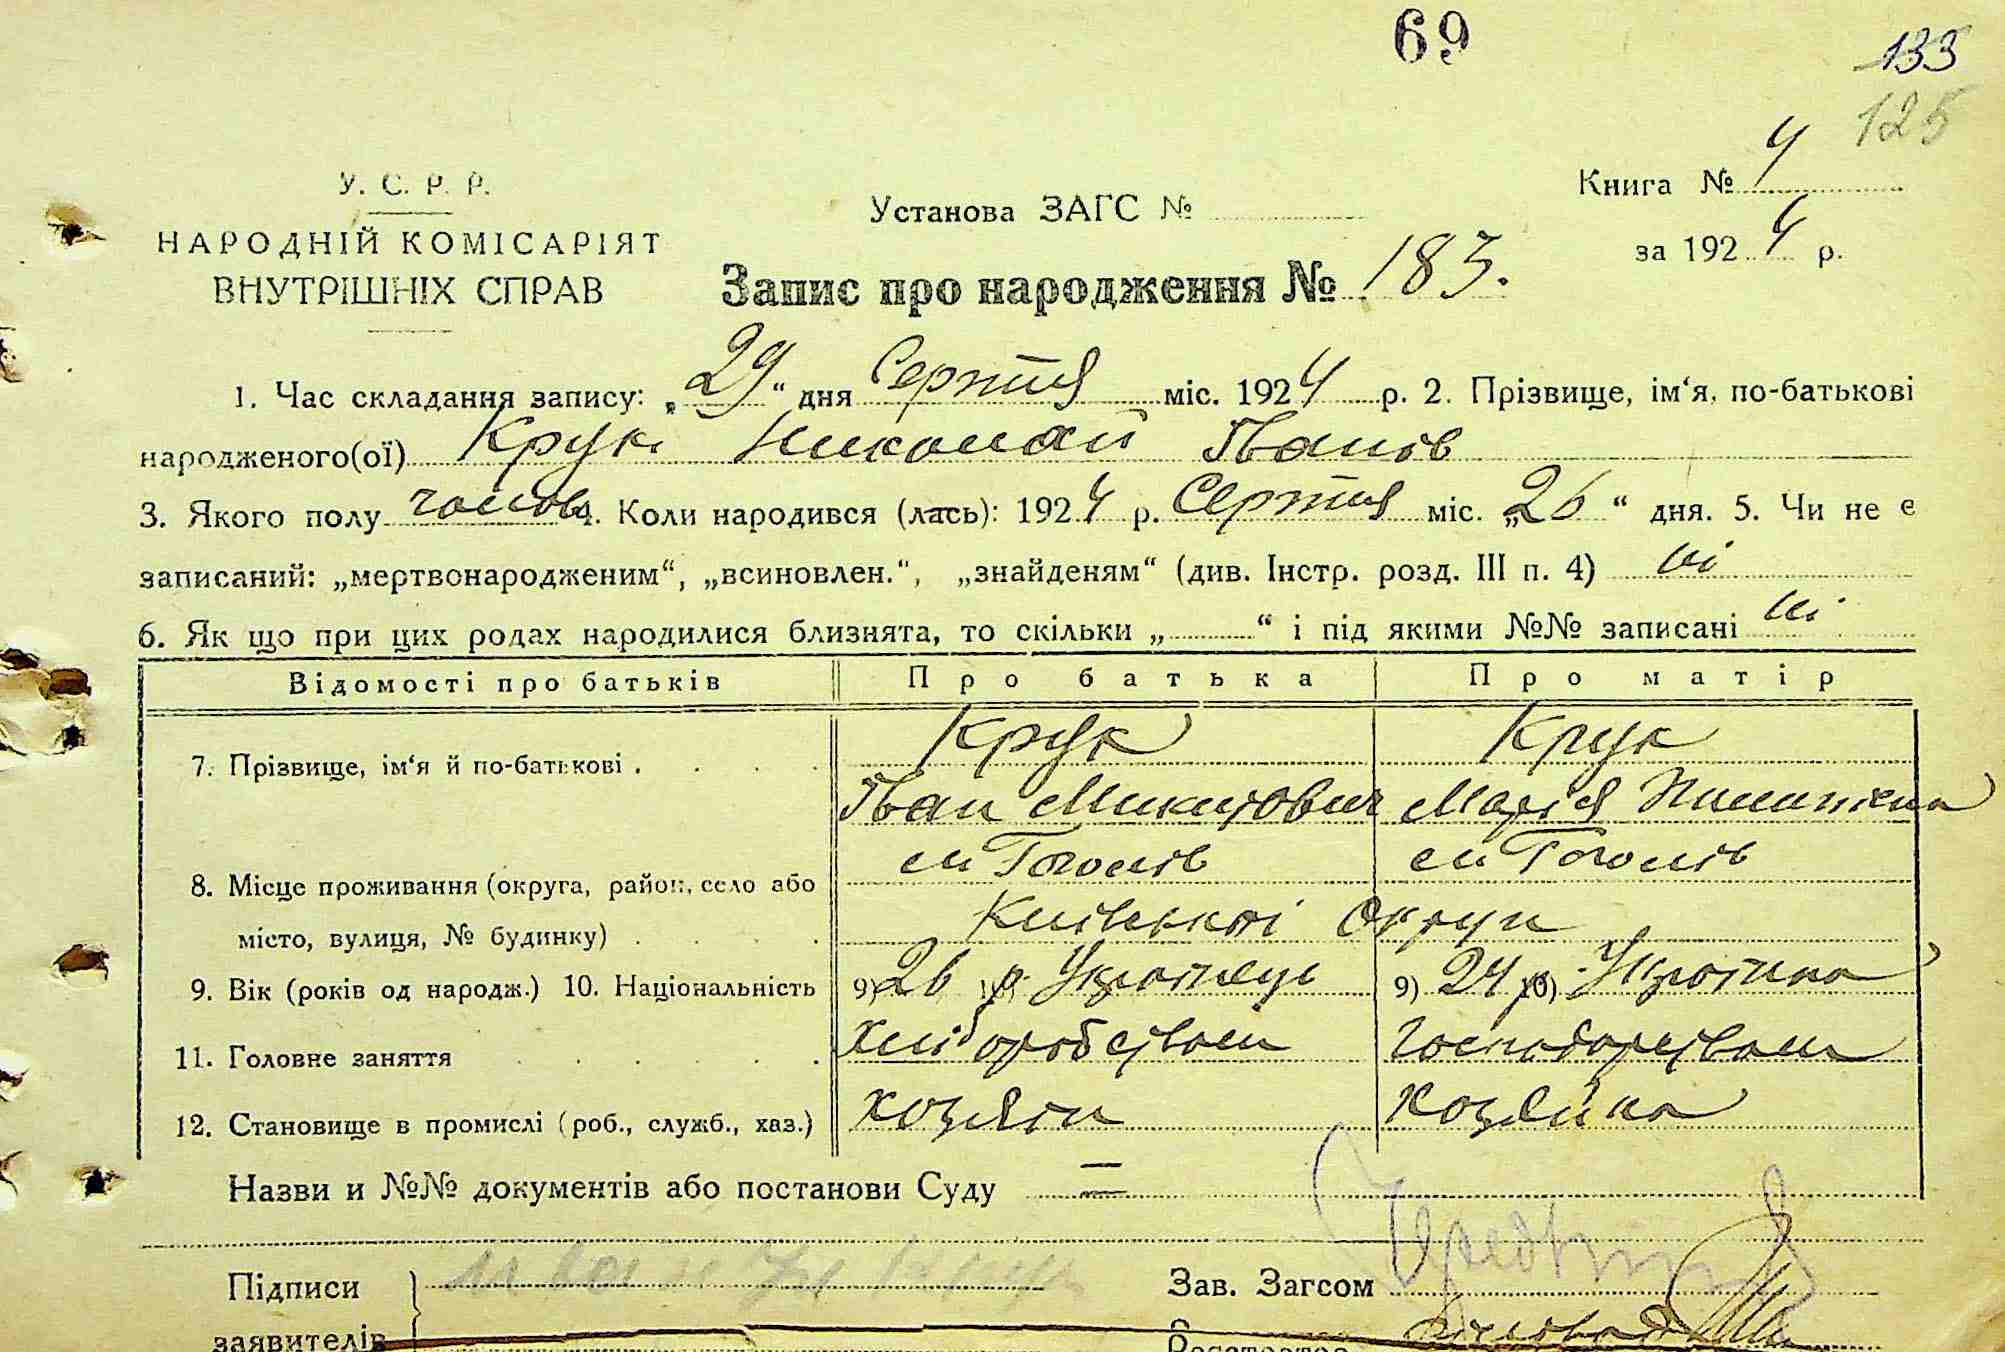 69
133
125
У. С. Р. Р.
НАРОДНІЙ КОМІСАРІЯТ
ВНУТРІШНІХ СПРАВ
Установа ЗАГС №
Книга № 4
за 1924 р.
Запис про народження № 183.
1. Час складання запису: „29“ дня Серпня міс. 1924 р. 2. Прізвище, ім‘я, по-батькові
народженого(ої) Крук Николай Іванів
3. Якого полу чолов. 4. Коли народився (лась): 1924 р. Серпня міс. „26“ дня. 5. Чи не є
записаний: „мертвонародженим“, „всиновлен.“, „знайденям“ (див. Інстр. розд. III п. 4) ні
6. Як що при цих родах народилися близнята, то скільки „ “ і під якими №№ записані ні
Відомості про батьків Про батька Про матір
Крук Крук
7. Прізвище, ім‘я й по-батькові
Іван Микитович Марія
м Гоголів м Гоголів
8. Місце проживання (округа, район, село або
Київської Округи
місто, вулиця, № будинку)
9. Вік (років од народж.) 10. Національність 9) 26 р. Українець 9) 24 10) Українка
11. Головне заняття Хліборобством Господарством
12. Становище в промислі (роб., служб., хаз.) хозяїн хозяйка
Назви и №№ документів або постанови Суду —
Підписи Зав. Загсом
заявителів Реєстратор